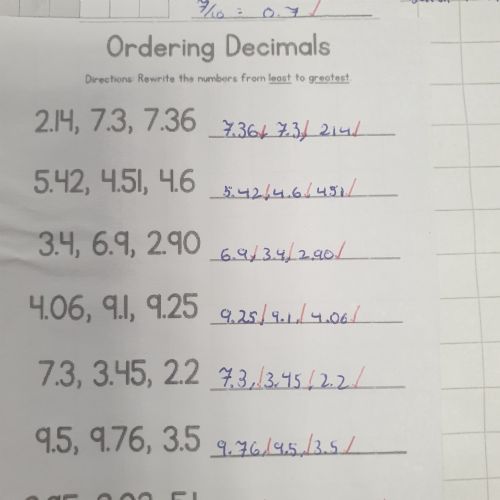 7/10 = 0.7
Ordering Decimals
Directions: Rewrite the numbers from least to greatest.
2.14, 7.3, 7.36 7.36, 7.3, 2.14
5.42, 4.51, 4.6 5.42, 4.6, 4.51
3.4, 6.9, 2.90 6.9, 3.4, 2.90
4.06, 9.1, 9.25 9.25, 9.1, 4.06
7.3, 3.45, 2.2 7.3, 3.45, 2.2
9.5, 9.76, 3.5 9.76, 9.5, 3.5